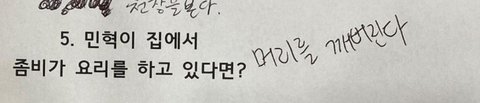 천장을 본다.
5. 민혁이 집에서
좀비가 요리를 하고 있다면? 머리를 깨버린다